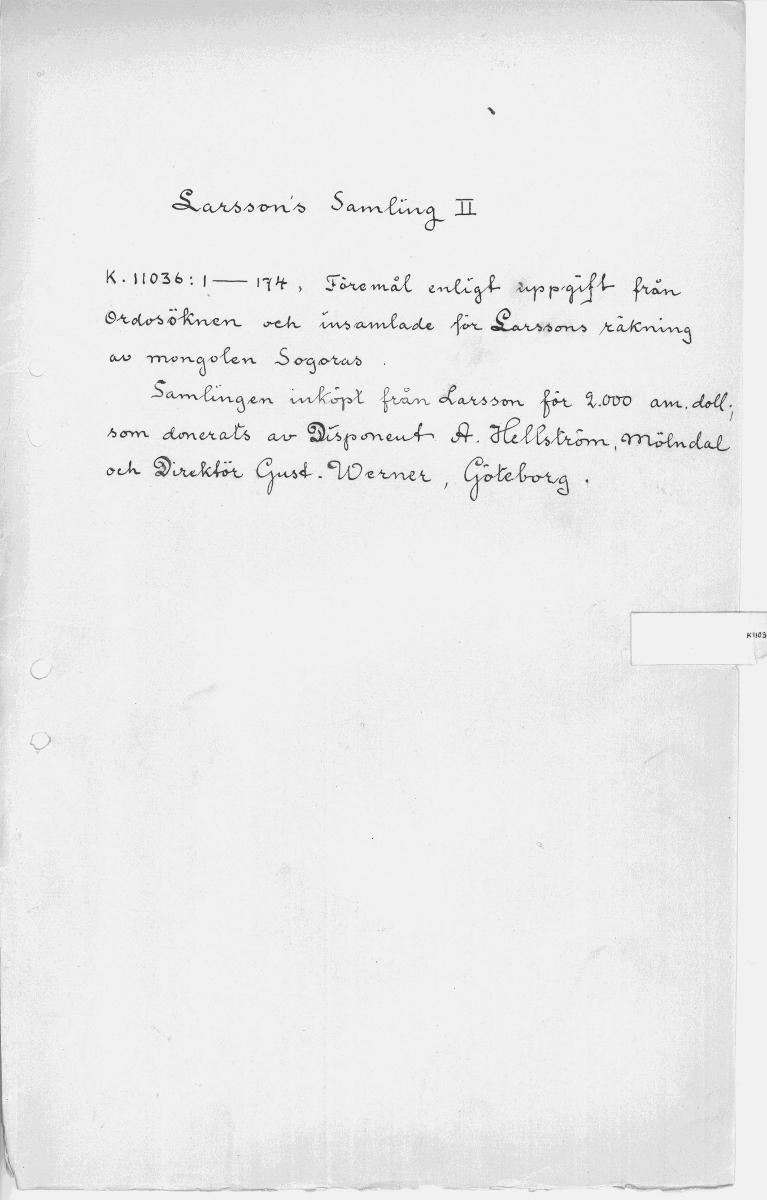 Larsson's Samling II
K. 11036:1 — 174, Föremål enligt uppgift från
Ordosöknen och insamlade för Larssons räkning
av mongolen Sogoras.
Samlingen inköpt från Larsson för 2.000 am. doll.,
som donerats av Disponent A. Hellström, Mölndal
och Direktör Gust. Werner, Göteborg.
K1103